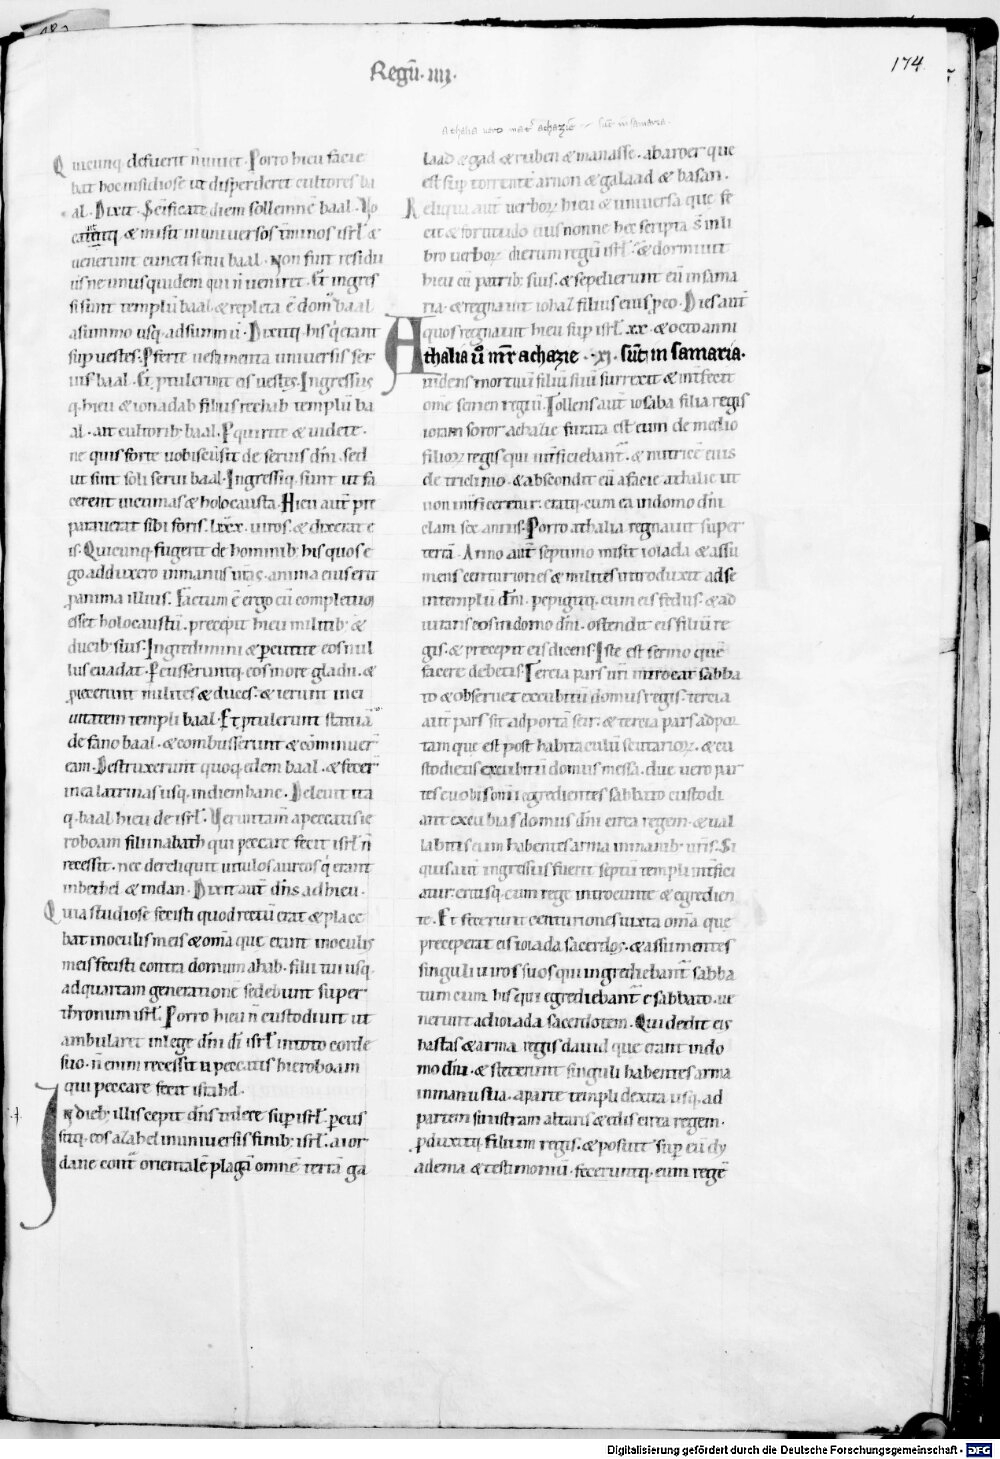 Regū · IIII ·
174
Athalia uero mat̄ achazie — sūt in samaria ·
Quicunq; defuerit n̄ uiuet · Porro hieu facie
bat hoc insidiose ut disperderet cultores ba
al · Dixit · Sc̄ificate diem sollemnē baal · Vo
cauitq; & misit in uniuersos t̄minos isrl̄ &
uenerunt cuncti serui baal · Non fuit residu
us ne unus quidem qui n̄ ueniret · Et ingres
si sunt templū baal & repleta ē dom' baal
a summo usq; ad summū · Dixitq; his q̄ erant
sup uestes · Pferte uestimenta uniuersis ser
uis baal · Et ptulerunt eis uestes · Ingressus
q; hieu & ionadab filius rechab templū ba
al · ait cultorib; baal · Pquirite & uidete ·
ne quis forte uobiscū sit de seruis dn̄i · sed
ut sint soli serui baal · Ingressiq; sunt ut fa
cerent uictimas & holocausta · Hieu aut̄ p̄
parauerat sibi foris · lxxx · uiros · & dixerat e
is · Quicunq; fugerit de hominib; his quos e
go adduxero in manus ur̄as · anima eius erit
p anima illius · Factum ē ergo cū completum
esset holocaustū · precepit hieu militib; &
ducib; suis · Ingredimini & pcutite eos nul
lus euadat · Pcusseruntq; eos in ore gladii · &
piecerunt milites & duces · & ierunt in ci
uitatem templi baal · Et ptulerunt statuā
de fano baal · & combusserunt & cōminuer̄
eam · Destruxerunt quoq; edem baal · & fecer̄
in ea latrinas usq; in diem hanc · Deleuit ita
q; baal hieu de isrl̄ · Veruntam̄ a peccatis ie
roboam filii nabath qui peccare fecit isrl̄ n̄
recessit · nec dereliquit uitulos aureos q̄ erant
in bethel & in dan · Dixit aut̄ dn̄s ad hieu ·
Quia studiose fecisti quod rectū erat & place
bat in oculis meis & om̄a que erant in oculis
meis fecisti contra domum ahab · filii tui usq;
ad quartam generationē sedebunt super
thronum isrl̄ · Porro hieu n̄ custodiuit ut
ambularet in lege dn̄i dī isrl̄ in toto corde
suo · n̄ enim recessit a peccatis hieroboam
qui peccare fecit israhel ·
In dieb; illis cepit dn̄s tedere sup isrl̄ · pcus
sitq; eos azahel in uniuersis finib; isrl̄ · a ior
dane cont̄ orientalē plagā omnē terrā ga
laad & gad & ruben & manasse · ab aroer que
est sup torrentē arnon & galaad & basan ·
Reliqua aut̄ uerboꝝ hieu & uniuersa que fe
cit & fortitudo eius nonne hec scripta s̄ in li
bro uerboꝝ dierum regū isrl̄ · & dormiuit
hieu cū patrib; suis · & sepelierunt eū in sama
ria · & regnauit iohaz filius eius p eo · Dies aut̄
quos regnauit hieu sup isrl̄ · xx · & octo anni
Athalia ū mr̄ achazie · XI · sūt in samaria ·
uidens mortuū filiū suū surrexit & int̄fecit
om̄e semen regiū · Tollens aut̄ iosaba filia regis
ioram soror achazie furata est eum de medio
filioꝝ regis qui int̄ficiebant̄ · & nutricē eius
de triclinio · & abscondit eū a facie athalie ut
non int̄ficeretur · eratq; cum ea in domo dn̄i
clam sex annis · Porro athalia regnauit super
terrā · Anno aut̄ septimo misit ioiada & assu
mens centuriones & milites introduxit ad se
in templū dn̄i · pepigitq; cum eis fedus · & ad
iurans eos in domo dn̄i · ostendit eis filiū re
gis · & precepit eis dicens · Iste est sermo quē
facere debetis · Tercia pars ur̄i introeat sabba
to & obseruet excubitū domus regis · tercia
aut̄ pars sit ad portā seir · & tercia pars ad por
tam que est post habitaculū scutarioꝝ · & cu
stodietis excubitū domus messa · due uero par
tes e uobis om̄s egredientes sabbato custodi
ant excubias domus dn̄i circa regem · & ual
labitis eum habentes arma in manib; ur̄is · Si
quis aut̄ ingressus fuerit septū templi int̄fici
atur · eritisq; cum rege introeunte & egredien
te · Et fecerunt centuriones iuxta om̄a que
preceperat eis ioiada sacerdos · & assumentes
singuli uiros suos qui ingrediebant̄ sabba
tum cum his qui egrediebant̄ e sabbato · ue
nerunt ad ioiada sacerdotem · Qui dedit eis
hastas & arma regis dauid que erant in do
mo dn̄i · & steterunt singuli habentes arma
in manu sua · a parte templi dextra usq; ad
partem sinistram altaris & edis circa regem ·
pduxitq; filium regis · & posuit sup eū dy
adema & testimoniū · feceruntq; eum regē
Digitalisierung gefördert durch die Deutsche Forschungsgemeinschaft - DFG